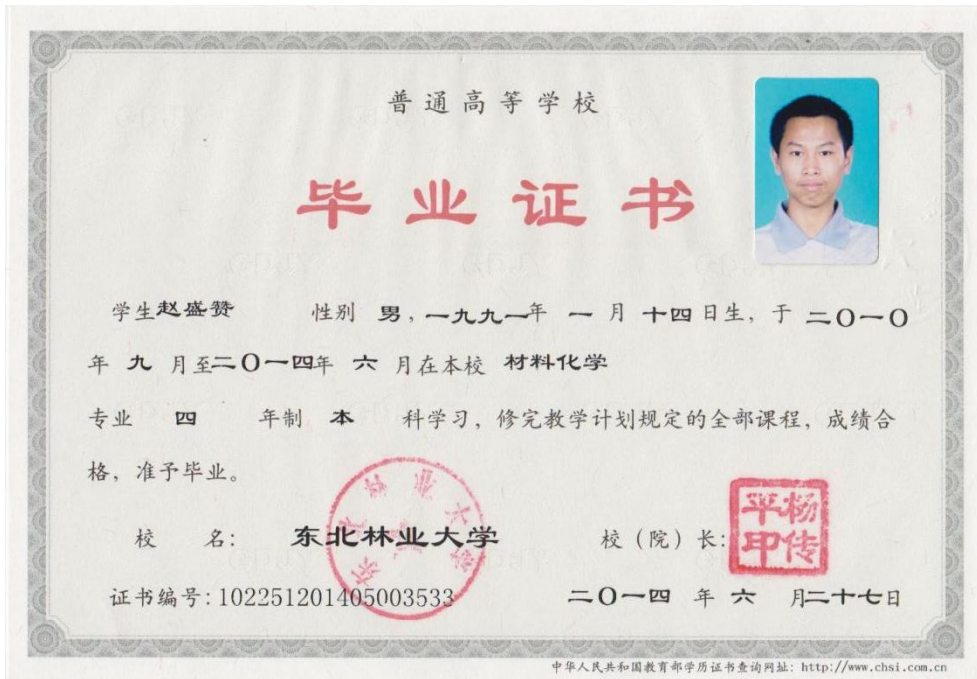 普通高等学校
毕业证书
学生赵盛赞 性别 男，一九九一年 一 月 十四日生，于 二〇一〇
年 九 月至二〇一四年 六 月在本校 材料化学
专业 四 年制 本 科学习，修完教学计划规定的全部课程，成绩合
格，准予毕业。
校 名： 东北林业大学 校（院）长： 杨传平印
东北林业大学
证书编号：102251201405003533 二〇一四 年 六 月二十七日
中华人民共和国教育部学历证书查询网址：http://www.chsi.com.cn